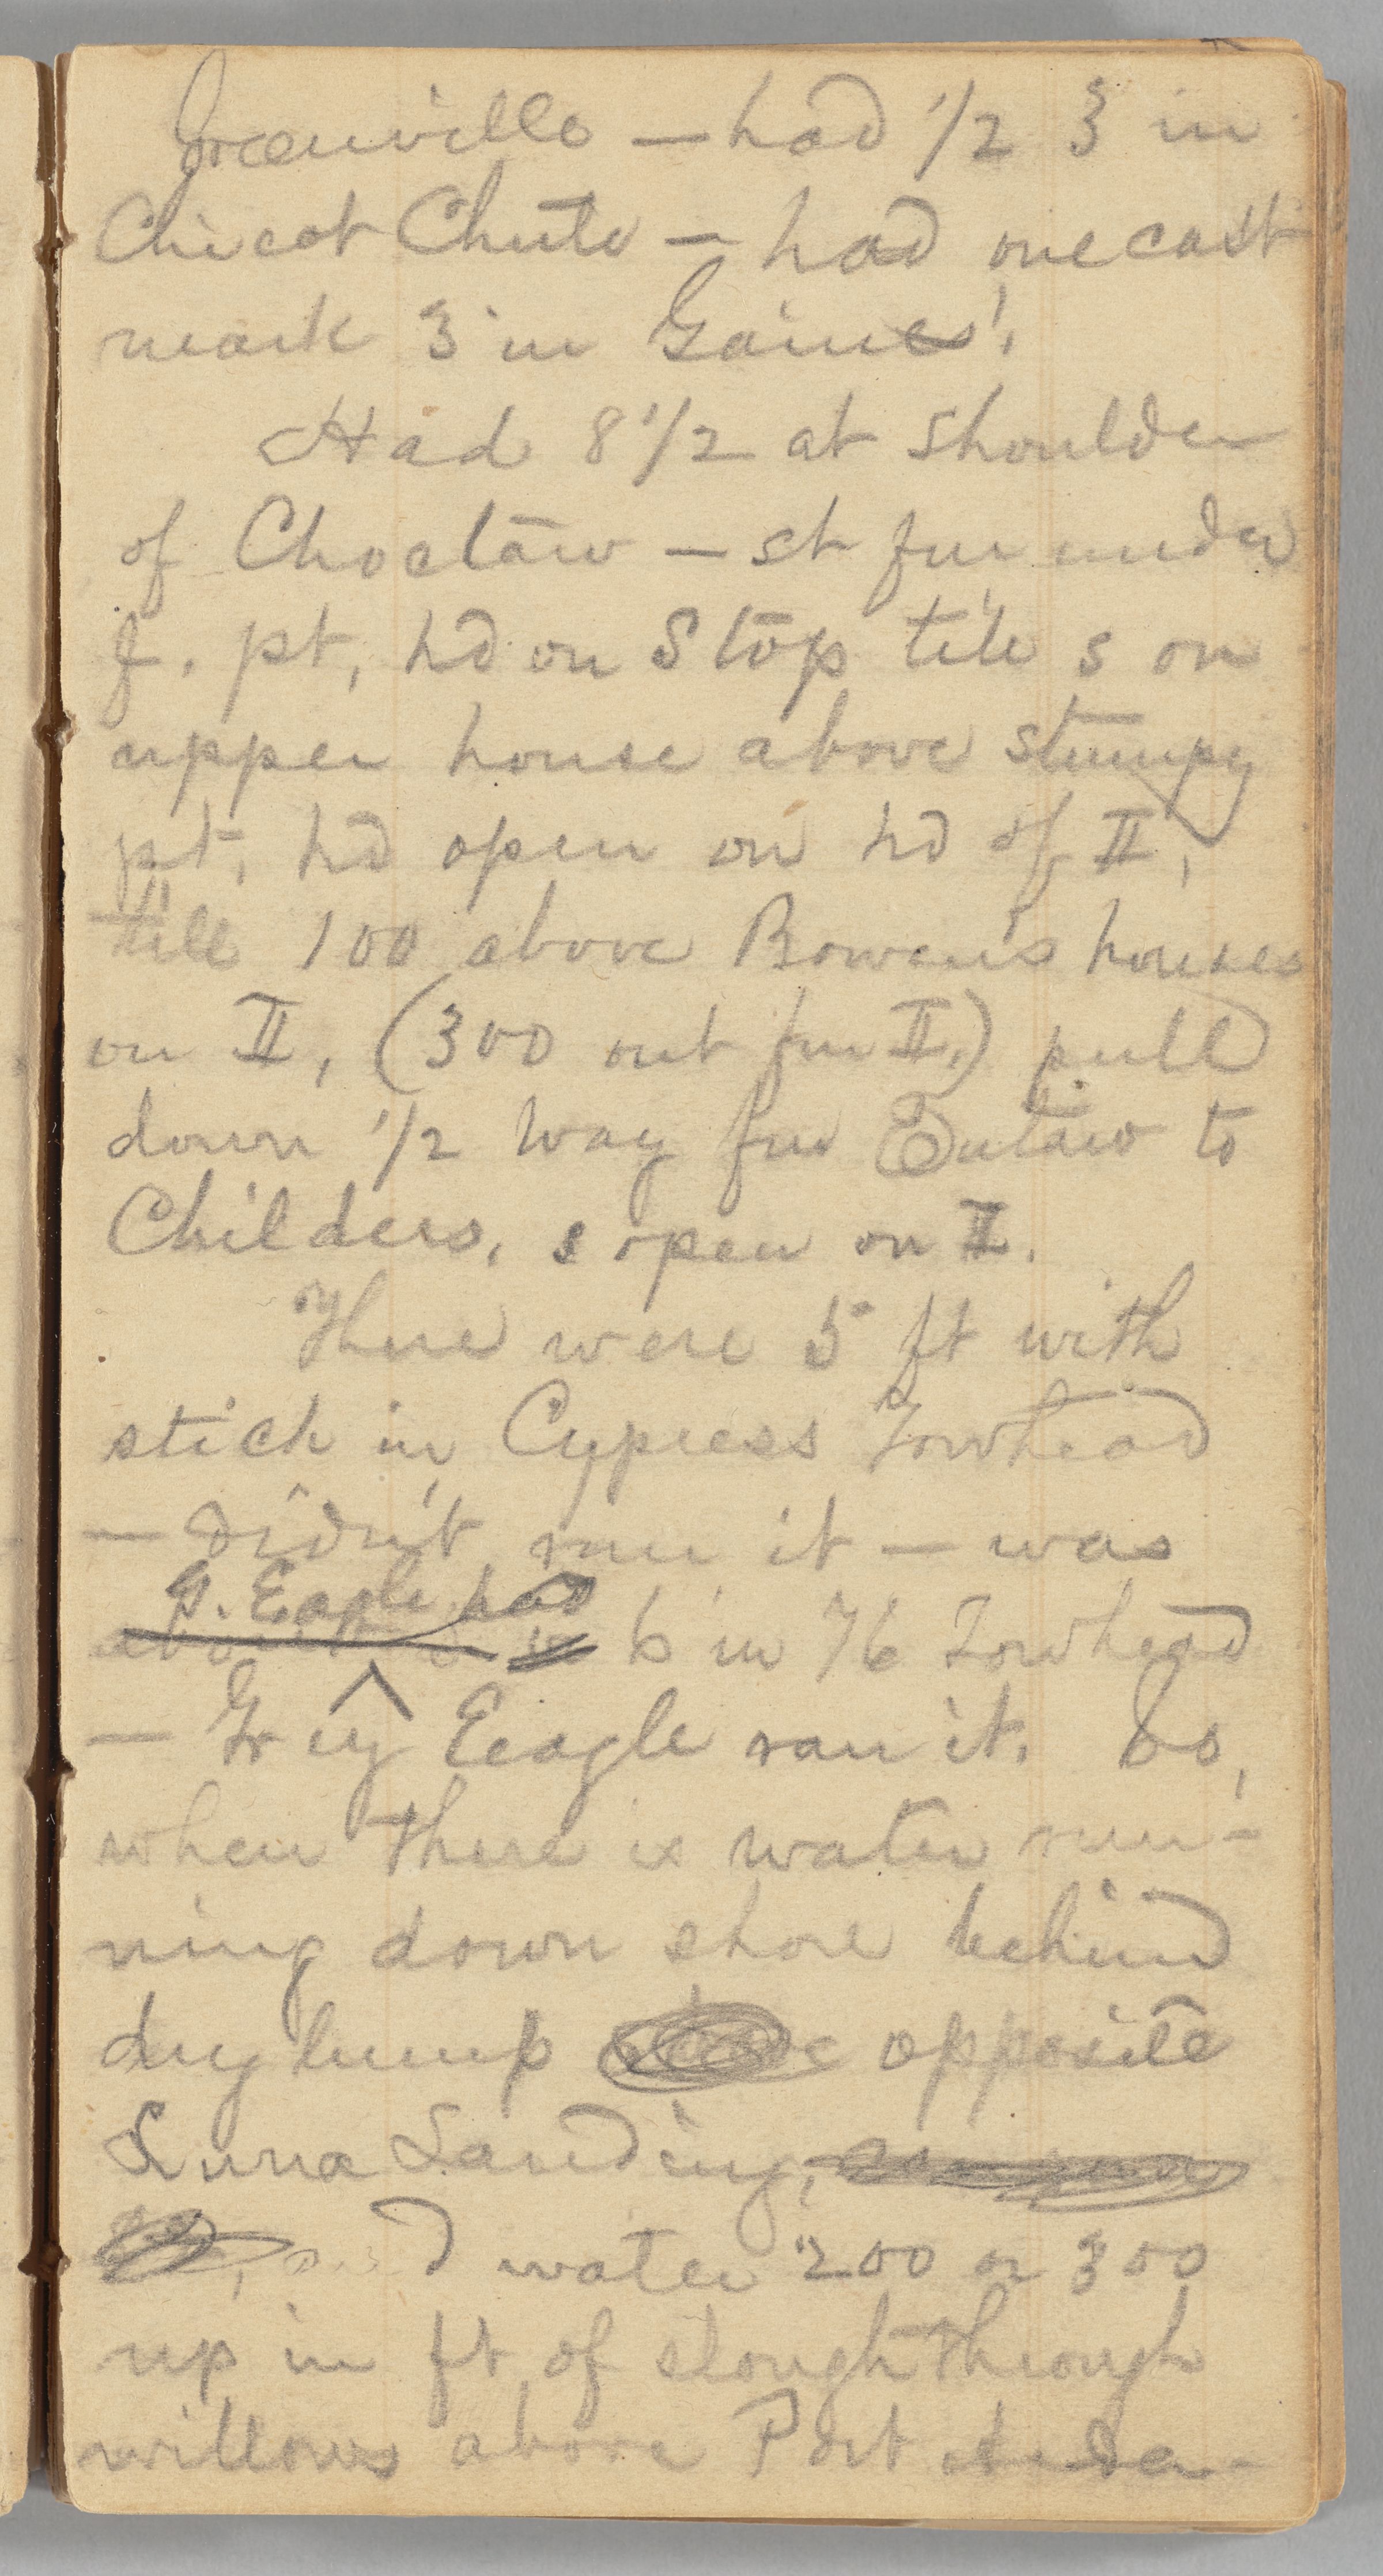 Greenville — had 1/2 3 in
Chicot Chute — had one cast
mark 3 in Gaines'.
Had 8 1/2 at shoulder
of Choctaw — st fm under
f. pt, hd on S top till s on
upper house above stumpy
pt, hd open on hd of II,
till 100 above Bowen's houses
on II, (300 out fm II,) pull
down 1/2 way fm Eutaw to
Childers, s open on II.
There were 5 ft with
stick in Cypress Towhead
— didn't run it — was
G. Eagle had
6 in 76 Towhead
— Gr ey Eagle ran it. So,
when there is water run-
ning down shore behind
dry lump opposite
Luna Landing,
water 200 or 300
up in ft of slough through
willows above Port Ander-